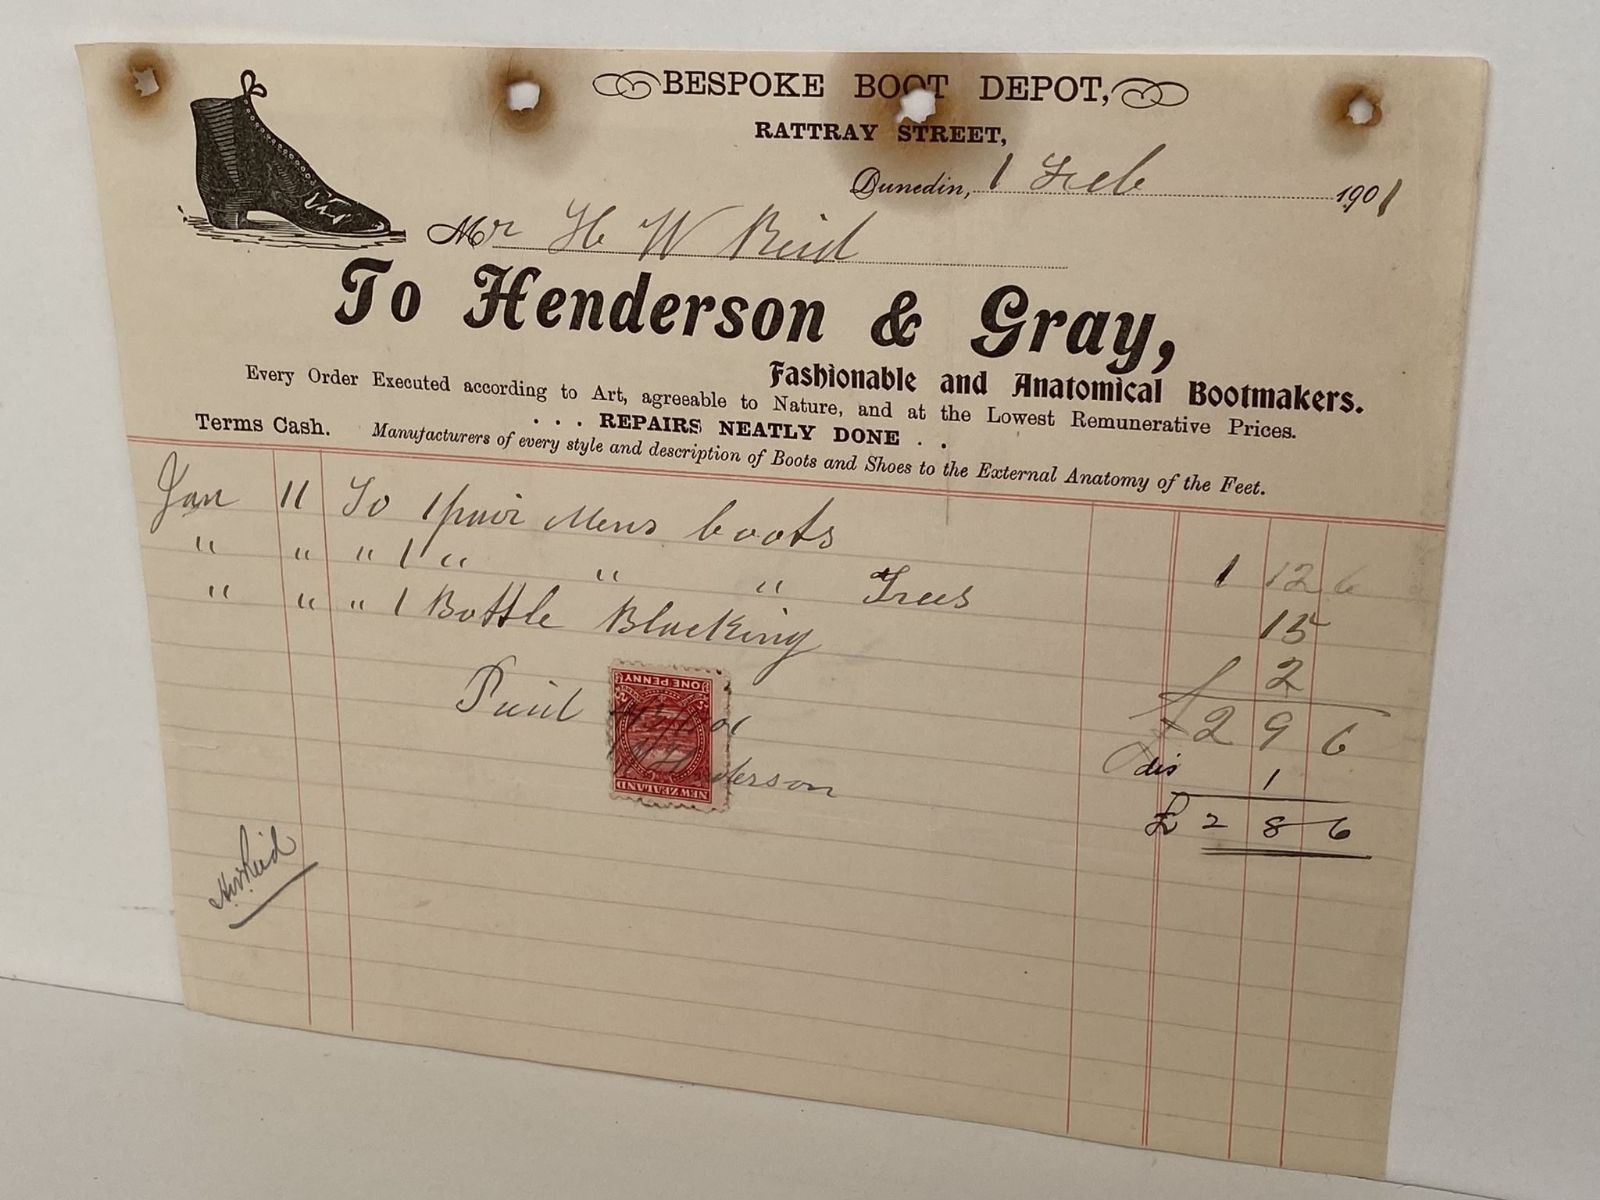 BESPOKE BOOT DEPOT,
RATTRAY STREET,
Dunedin, 1 Feb 1901
Mr H W Reid
To Henderson & Gray,
Fashionable and Anatomical Bootmakers.
Every Order Executed according to Art, agreeable to Nature, and at the Lowest Remunerative Prices.
Terms Cash. . . . REPAIRS NEATLY DONE . .
Manufacturers of every style and description of Boots and Shoes to the External Anatomy of the Feet.
Jan 11 To 1 pair Mens boots 1 12 6
" " " 1 " " " Trees 15
" " " 1 Bottle Blacking 2
£ 2 9 6
Paid 01
dis 1
Henderson
£ 2 8 6
ONE PENNY
NEW ZEALAND
HW Reid